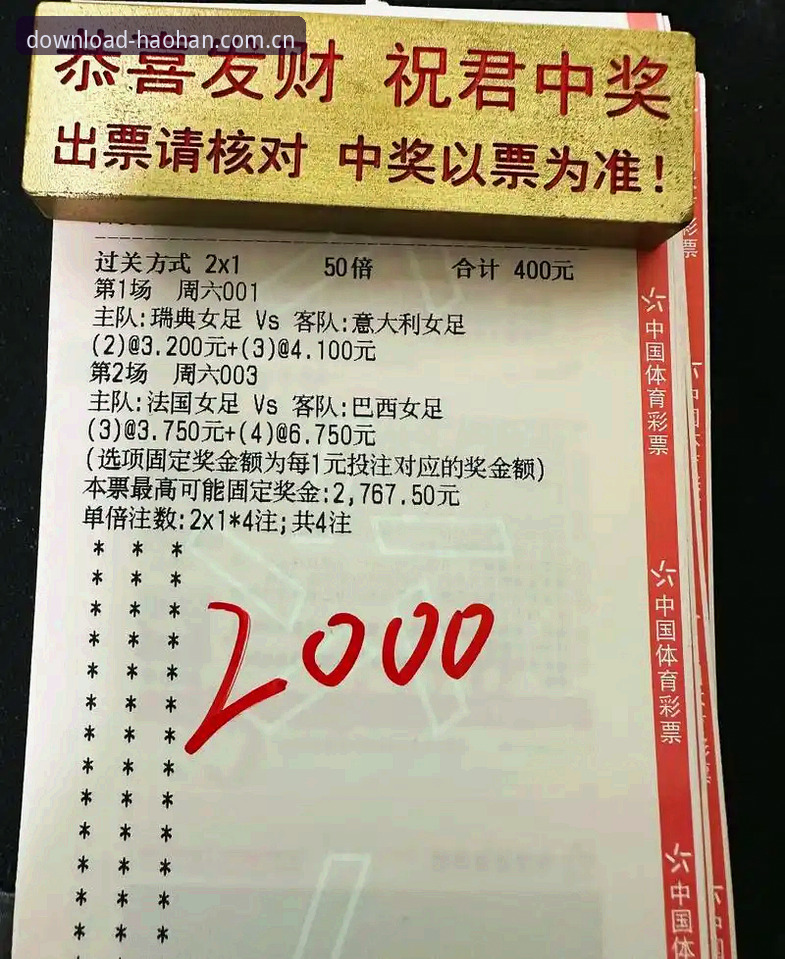 download-haohan.com.cn
恭喜发财 祝君中奖
出票请核对 中奖以票为准!
过关方式 2x1 50倍 合计 400元
第1场 周六001
主队:瑞典女足 Vs 客队:意大利女足
(2)@3.200元+(3)@4.100元
第2场 周六003
主队:法国女足 Vs 客队:巴西女足
(3)@3.750元+(4)@6.750元
(选项固定奖金额为每1元投注对应的奖金额)
本票最高可能固定奖金:2,767.50元
单倍注数:2x1*4注;共4注
* * *
* * *
* * *
* * *
* * *
* * *
* * *
* * *
* * *
* * *
* * *
* * *
* * *
2000
中国体育彩票
中国体育彩票
中国体